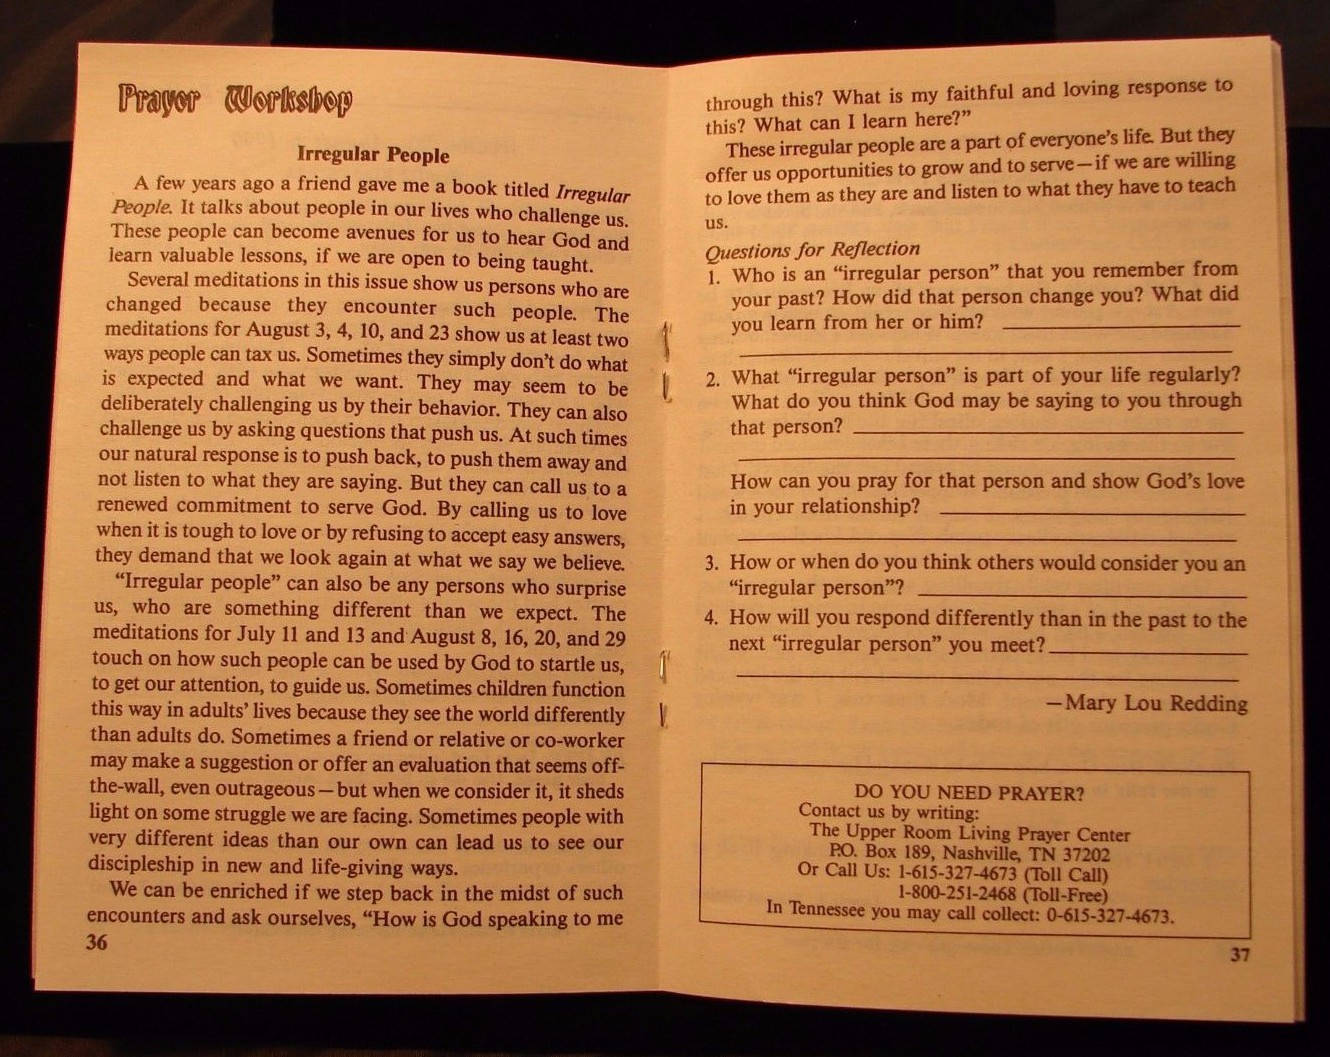 Prayer Workshop
Irregular People
A few years ago a friend gave me a book titled Irregular
People. It talks about people in our lives who challenge us.
These people can become avenues for us to hear God and
learn valuable lessons, if we are open to being taught.
Several meditations in this issue show us persons who are
changed because they encounter such people. The
meditations for August 3, 4, 10, and 23 show us at least two
ways people can tax us. Sometimes they simply don't do what
is expected and what we want. They may seem to be
deliberately challenging us by their behavior. They can also
challenge us by asking questions that push us. At such times
our natural response is to push back, to push them away and
not listen to what they are saying. But they can call us to a
renewed commitment to serve God. By calling us to love
when it is tough to love or by refusing to accept easy answers,
they demand that we look again at what we say we believe.
“Irregular people” can also be any persons who surprise
us, who are something different than we expect. The
meditations for July 11 and 13 and August 8, 16, 20, and 29
touch on how such people can be used by God to startle us,
to get our attention, to guide us. Sometimes children function
this way in adults' lives because they see the world differently
than adults do. Sometimes a friend or relative or co-worker
may make a suggestion or offer an evaluation that seems off-
the-wall, even outrageous—but when we consider it, it sheds
light on some struggle we are facing. Sometimes people with
very different ideas than our own can lead us to see our
discipleship in new and life-giving ways.
We can be enriched if we step back in the midst of such
encounters and ask ourselves, “How is God speaking to me
36
through this? What is my faithful and loving response to
this? What can I learn here?”
These irregular people are a part of everyone's life. But they
offer us opportunities to grow and to serve—if we are willing
to love them as they are and listen to what they have to teach
us.
Questions for Reflection
1. Who is an “irregular person” that you remember from
your past? How did that person change you? What did
you learn from her or him?
2. What “irregular person” is part of your life regularly?
What do you think God may be saying to you through
that person?
How can you pray for that person and show God's love
in your relationship?
3. How or when do you think others would consider you an
“irregular person”?
4. How will you respond differently than in the past to the
next “irregular person” you meet?
—Mary Lou Redding
DO YOU NEED PRAYER?
Contact us by writing:
The Upper Room Living Prayer Center
P.O. Box 189, Nashville, TN 37202
Or Call Us: 1-615-327-4673 (Toll Call)
1-800-251-2468 (Toll-Free)
In Tennessee you may call collect: 0-615-327-4673.
37